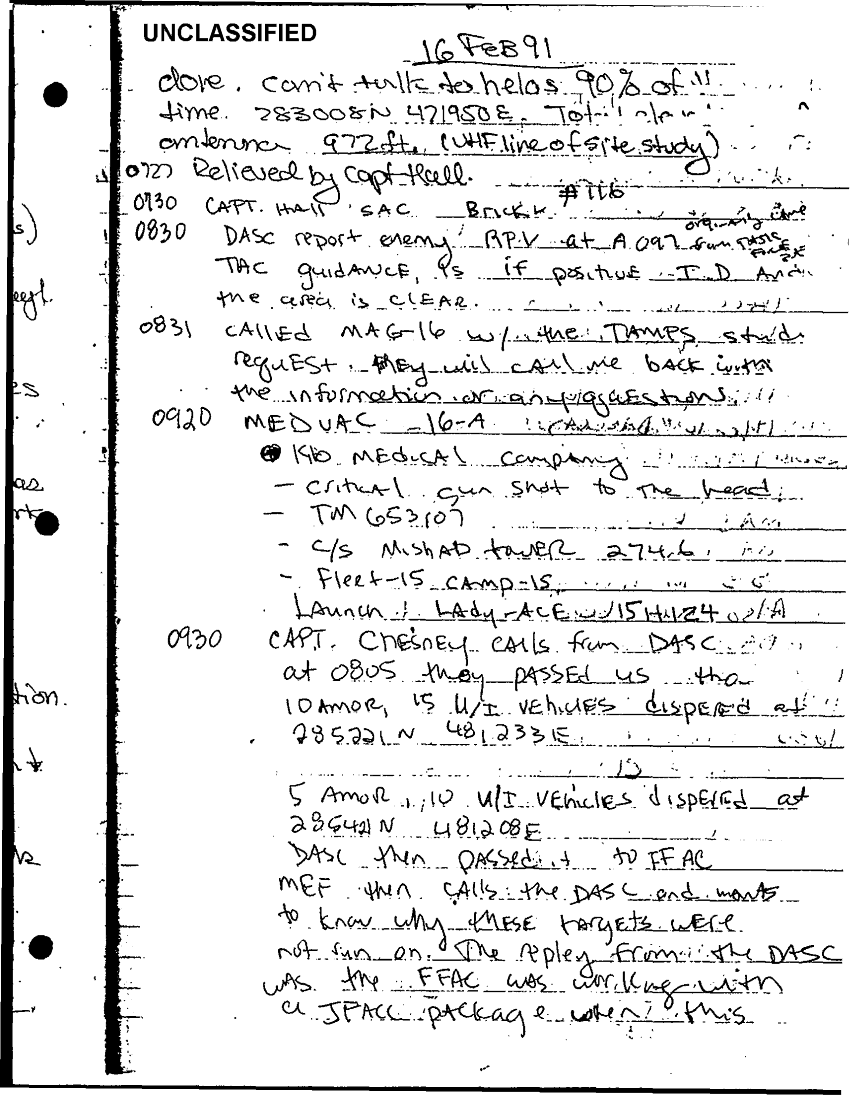 UNCLASSIFIED
16 FEB 91
done. Can't talk to helos 90% of
time. 283008N 471950E. Total
antenna 972 ft. (UHF line of site study)
0727 Relieved by Capt Hall.
#116
0730 CAPT. Hall SAC
0830 DASC report enemy RPV at A 097 from
TAC guidance, is if positive I.D And
the area is CLEAR.
0831 CALLED MAG-16 w/ the TAMPS
request. They will call me back with
the information or any questions.
0920 MEDVAC -16-A
MEDICAL Company
- critical gun shot to the head
- TM 653107
- C/S MishAD tower 274.6
- Fleet-15 CAMP-15
Launch LADy-ACE
0930 CAPT. Chesney calls from DASC
at 0805 they PASSED us
10 AMOR, 15 U/I VEHICLES dispered at
285221N 481233E
5 Amor, 10 U/I VEhicles dispered at
285421N 481208E
DASC then passed it to FFAC
MEF then CAlls the DASC and wants
to know why these targets were
not run on. The repley from the DASC
was the FFAC was working with
a JFACC package when this
s)
as
tion.